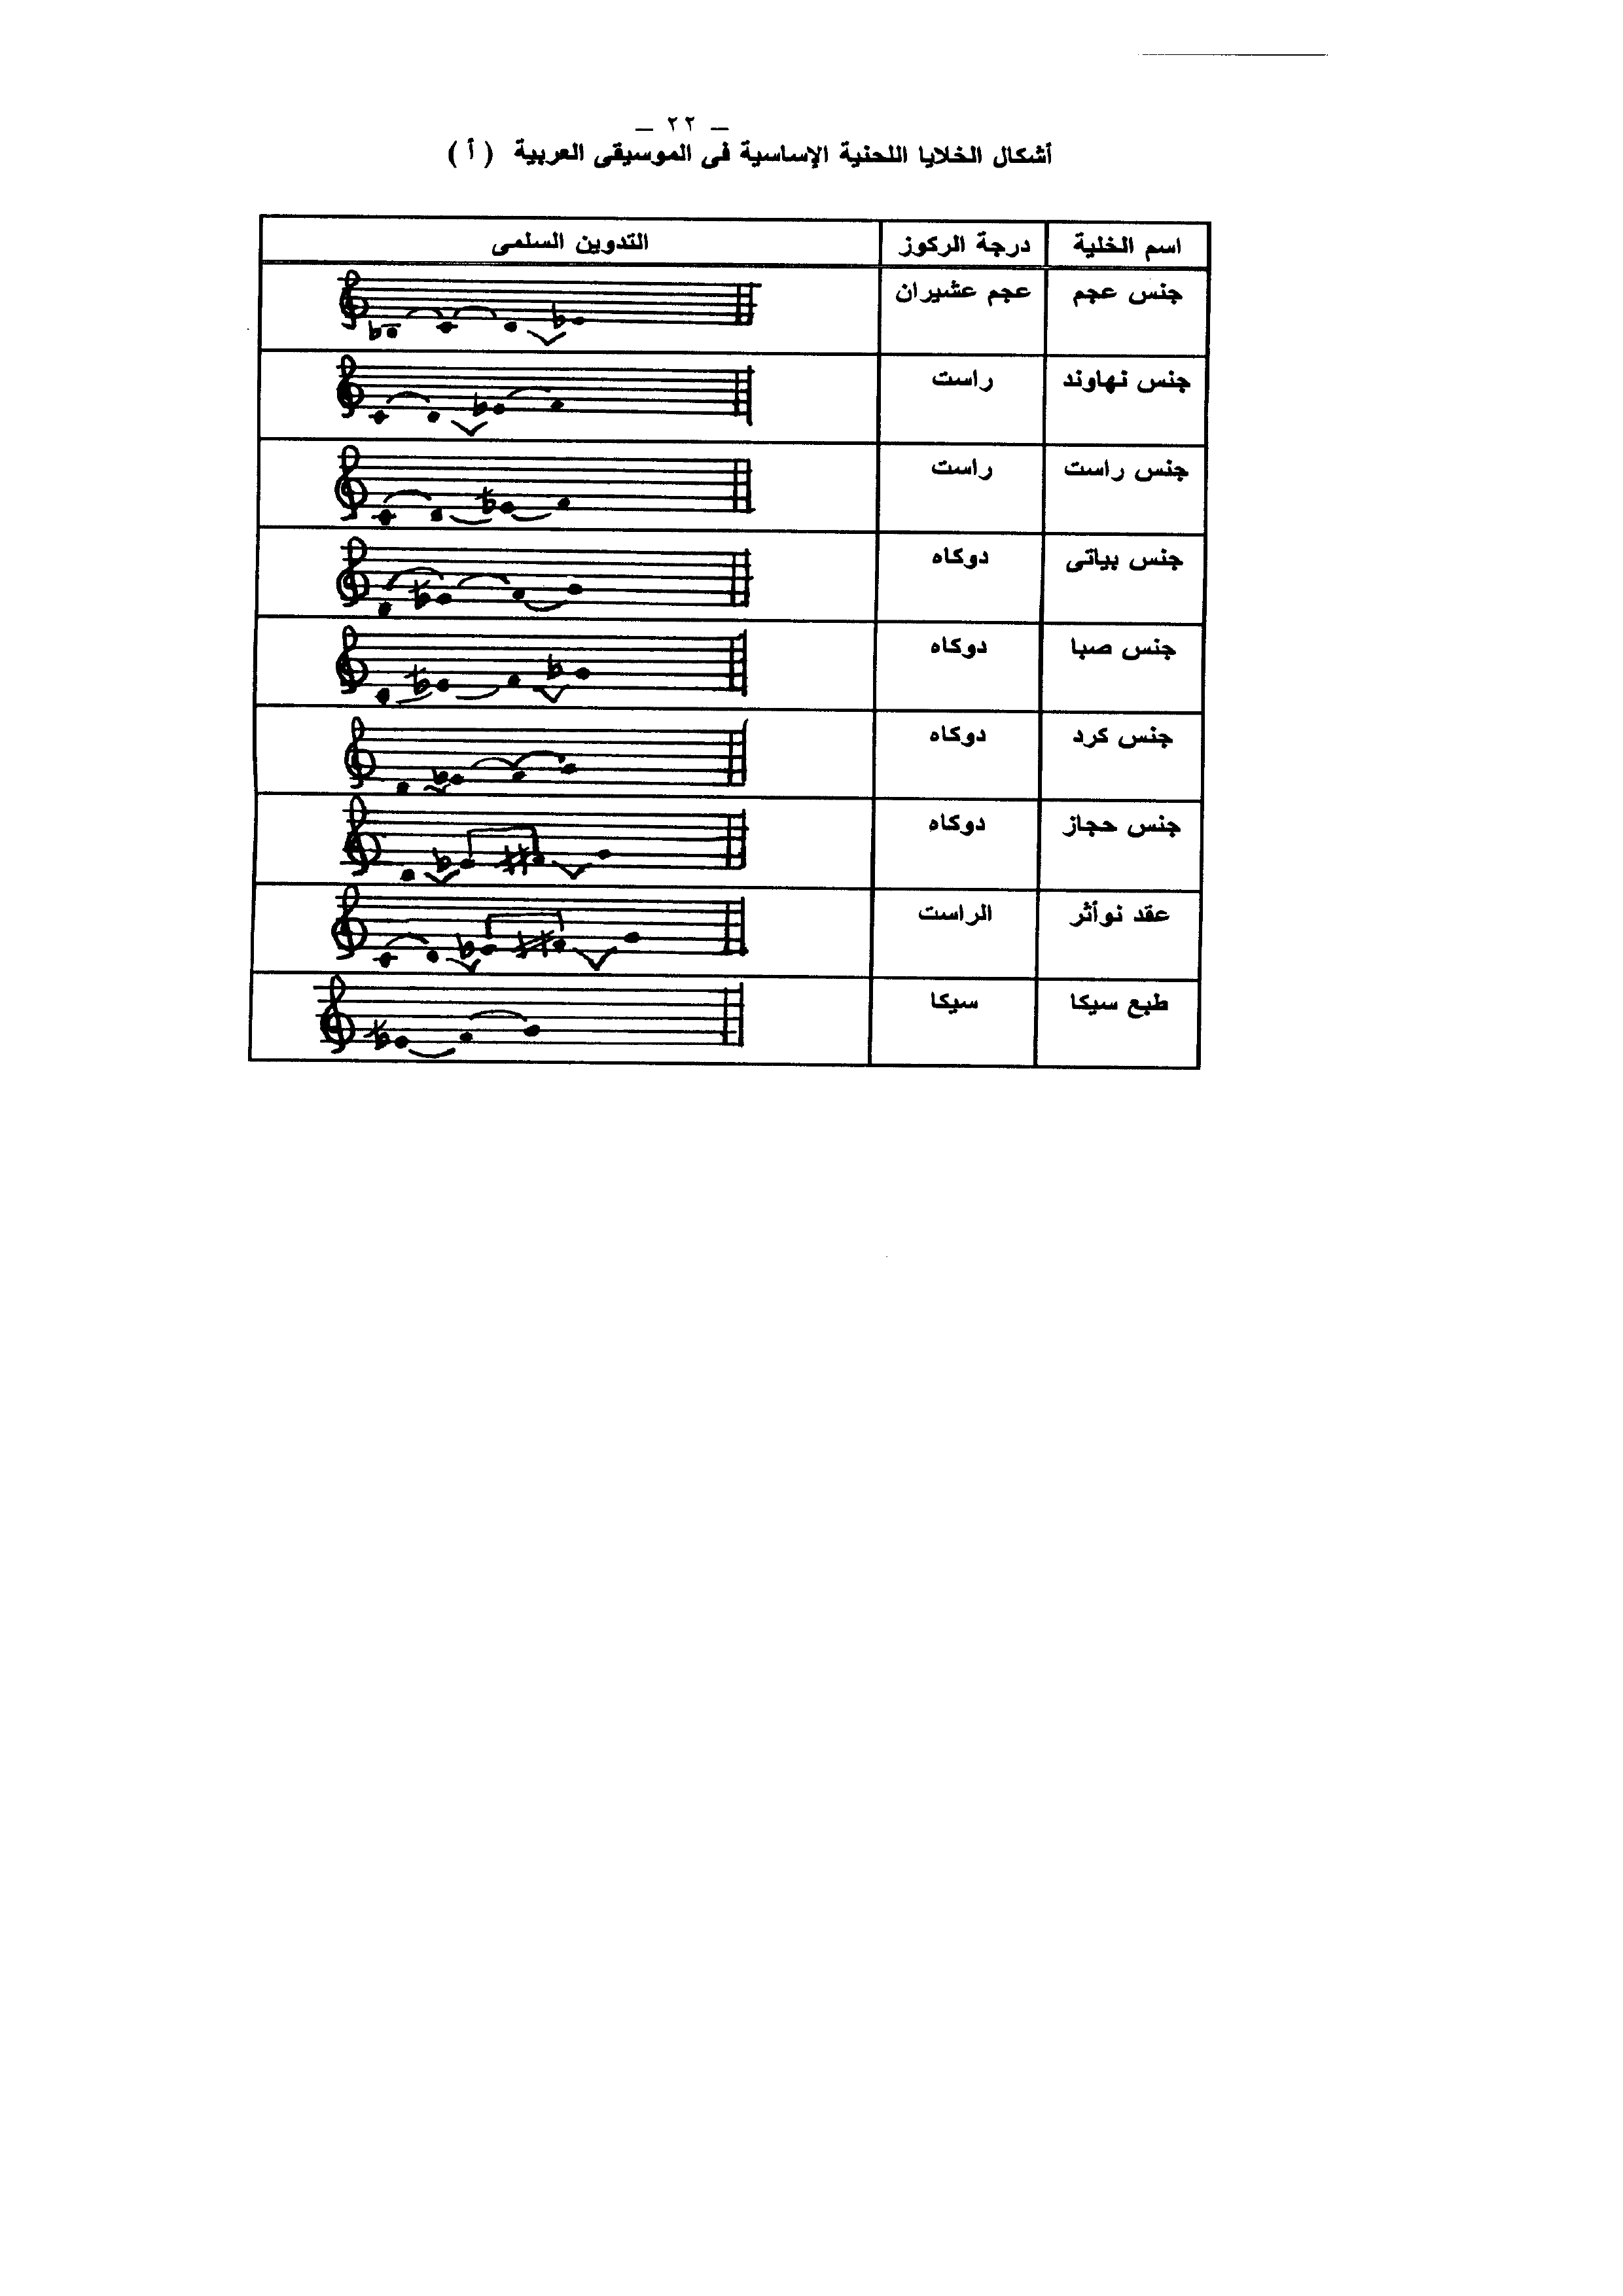 – ٢٢ –
أشكال الخلايا اللحنية الإساسية فى الموسيقى العربية ( أ )
اسم الخلية درجة الركوز التدوين السلمى
جنس عجم عجم عشيران
جنس نهاوند راست
جنس راست راست
جنس بياتى دوكاه
جنس صبا دوكاه
جنس كرد دوكاه
جنس حجاز دوكاه
عقد نوأثر الراست
طبع سيكا سيكا